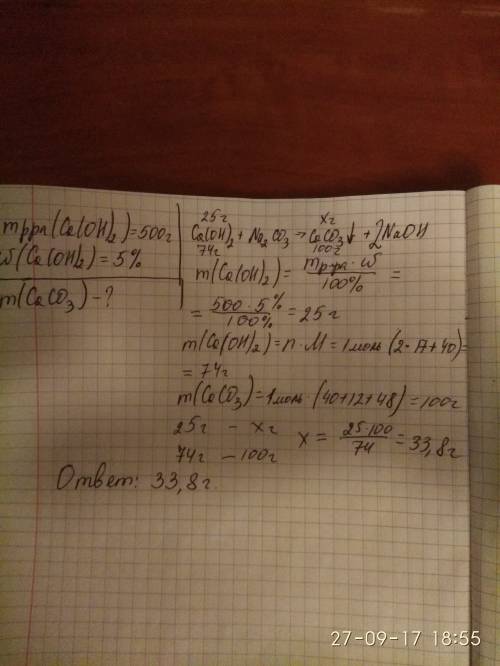 mрра(Ca(OH)₂)=500г
ω(Ca(OH)₂)=5%
m(CaCO₃)-?
25г xг
Ca(OH)₂ + Na₂CO₃ → CaCO₃↓ + 2NaOH
74г 100г
m(Ca(OH)₂) = mр-ра·ω / 100% =
= 500·5% / 100% = 25г
m(Ca(OH)₂)=n·M=1моль·(2·17+40)=
= 74г
m(CaCO₃)=1моль·(40+12+48)=100г
25г - xг x = 25·100 / 74 = 33,8г
74г - 100г
Ответ: 33,8г.
27-09-17 18:55